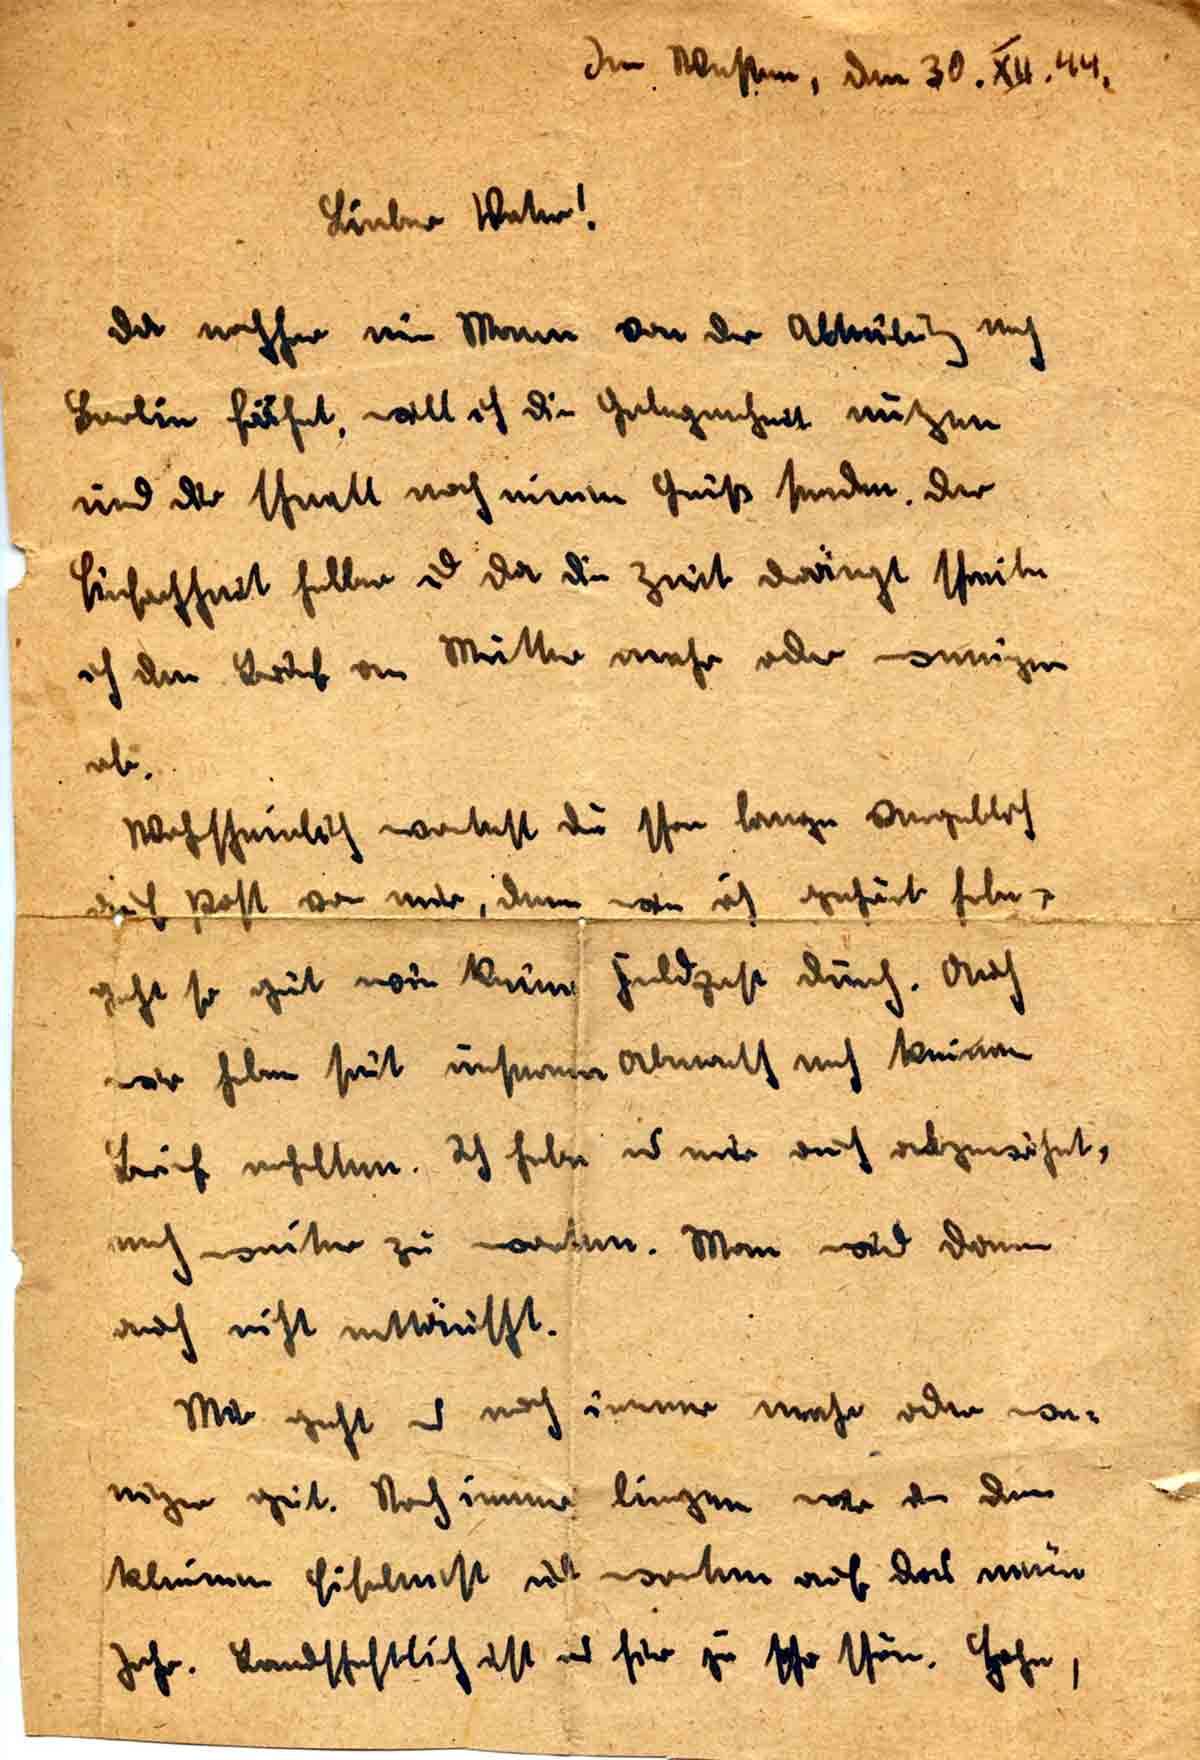 Im Westen, den 30.XII.44.
Lieber Vater!
Da nachher ein Mann von der Abteilung nach
Berlin fährt, will ich die Gelegenheit nützen
und dir schnell noch einen Gruß senden. Der
Einfachheit halber u da die Zeit drängt schreibe
ich den Brief an Mutter mehr oder weniger
ab.
Wahrscheinlich wartest du schon lange vergeblich
auf Post von mir, denn wie ich gehört habe,
geht so gut wie keine Feldpost durch. Auch
wir haben seit unserem Abmarsch noch keinen
Brief erhalten. Ich habe es mir auch abgewöhnt,
noch weiter zu warten. Man wird dann
auch nicht enttäuscht.
Mir geht es noch immer mehr oder we=
niger gut. Noch immer liegen wir in dem
kleinen Eifelnest und warten auf das neue
Jahr. Landschaftlich ist es hier ja sehr schön. Hohe,